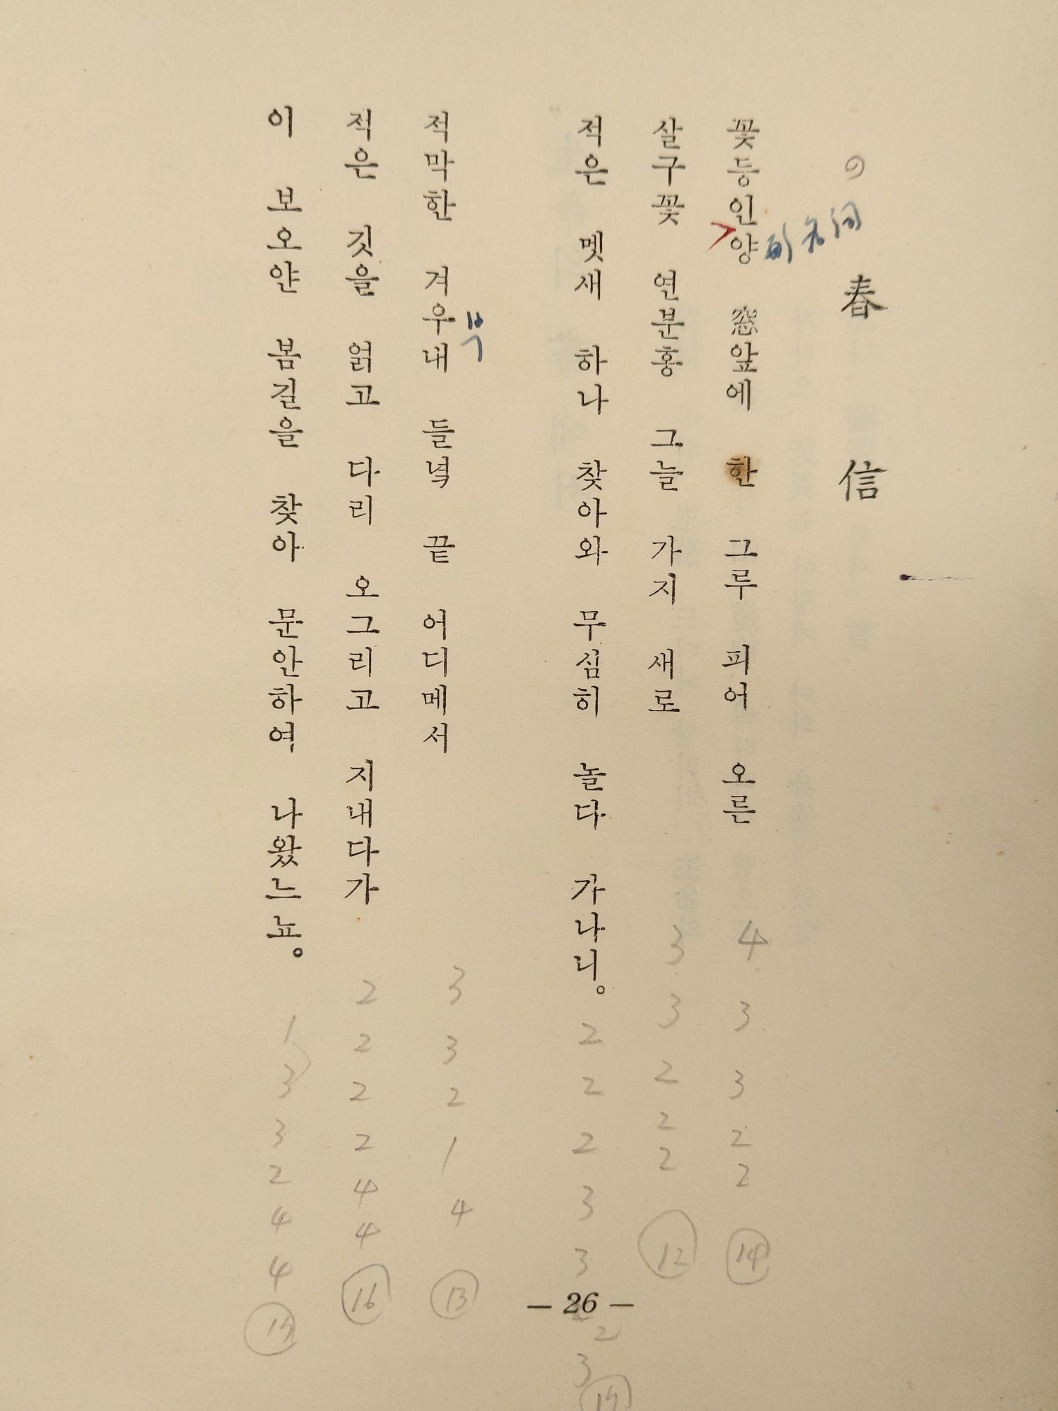 の
春信
꽃등인양 窓앞에 한 그루 피어 오른
形名詞
살구꽃 연분홍 그늘 가지 새로
적은 멧새 하나 찾아와 무심히 놀다 가나니。
적막한 겨우내 들녘 끝 어디메서
적은 깃을 얽고 다리 오그리고 지내다가
이 보오얀 봄길을 찾아 문안하여 나왔느뇨。
4 3 3 2 2 14
3 3 2 2 2 12
2 2 2 3 3 2 3 17
3 3 2 1 4 13
2 2 2 2 4 4 16
1 3 3 2 4 4 17
— 26 —